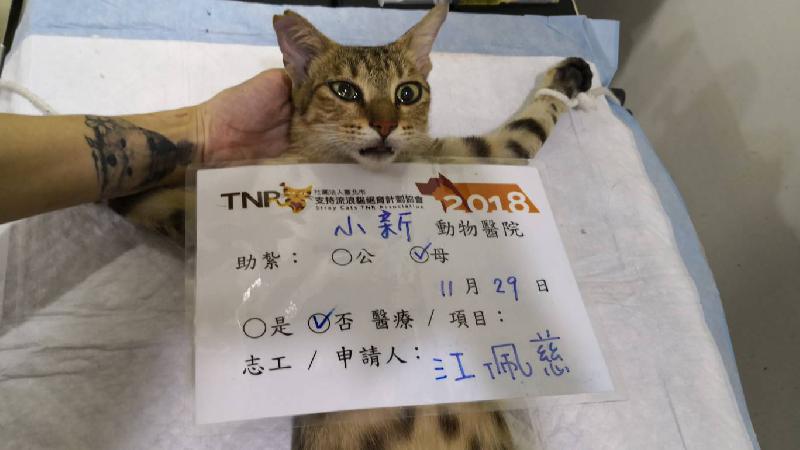 TNR 社團法人臺北市
支持流浪貓絕育計劃協會
Stray Cats TNR Association
2018
小新 動物醫院
助紮： ○公 ✓母
11月29日
○是 ✓否 醫療 / 項目：
志工 / 申請人： 江珮慈